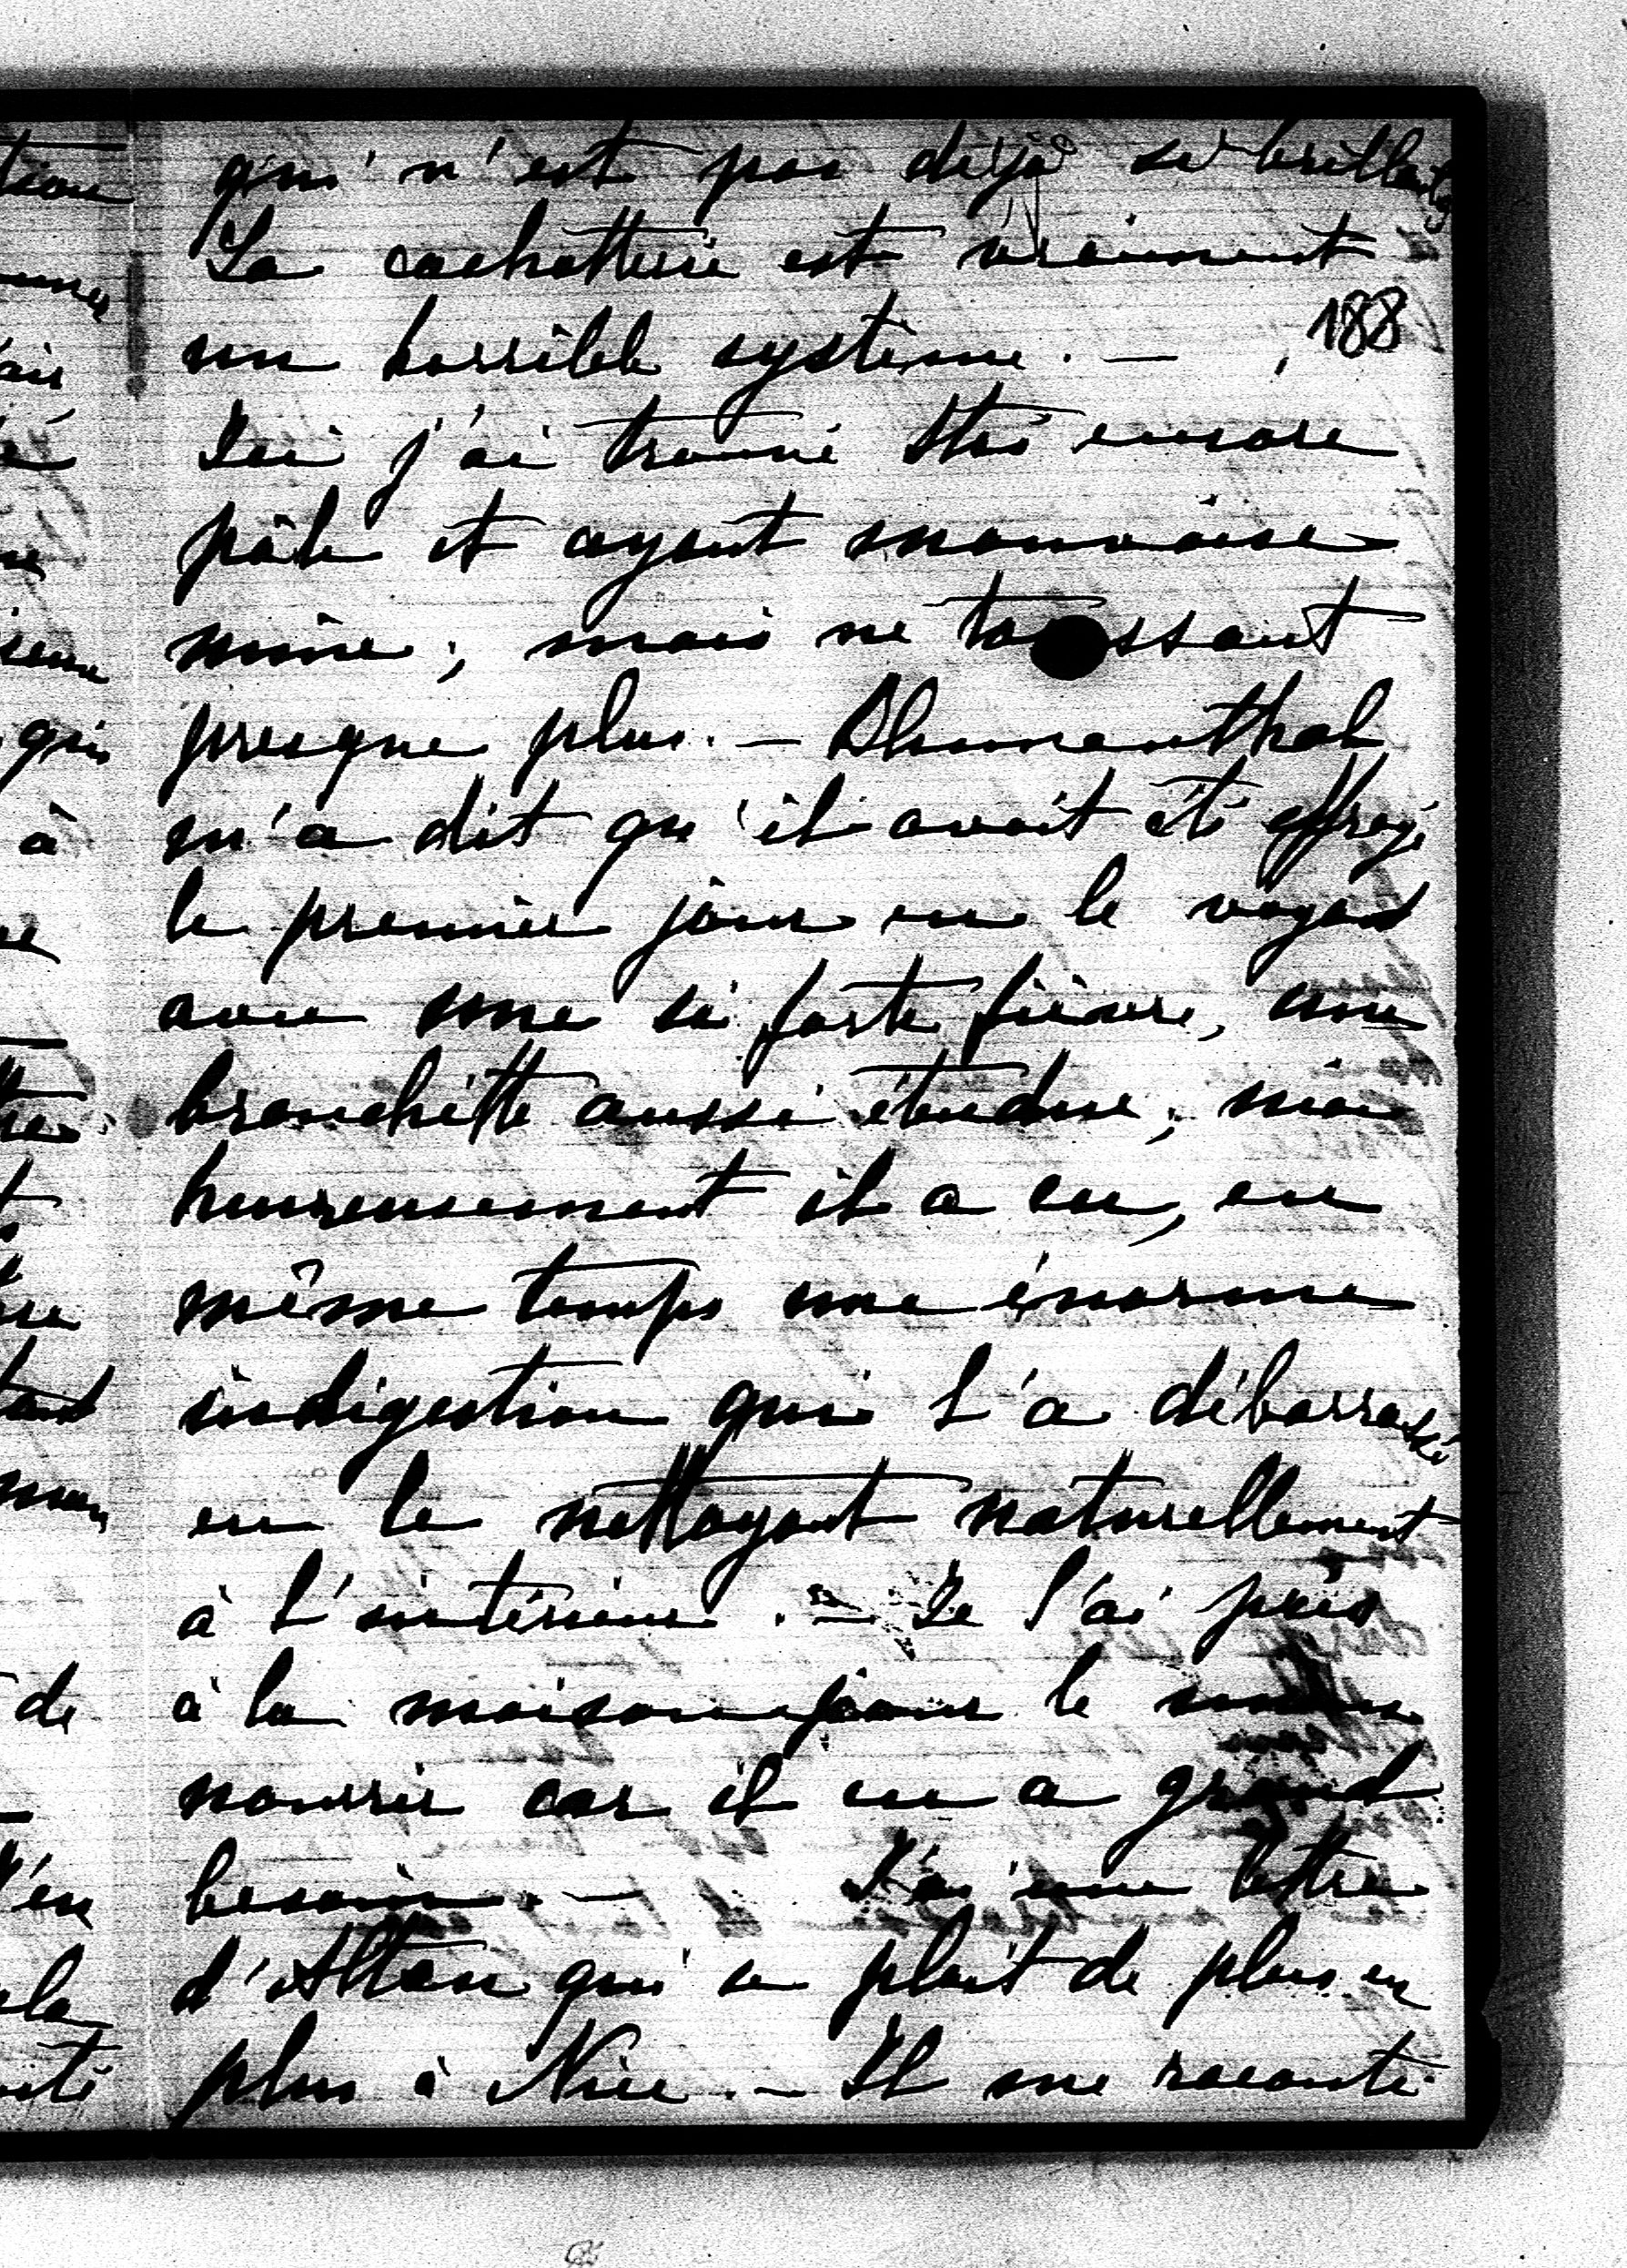 qui n'est pas déjà si brillante
La cachotterie est vraiment
188
un horrible système. —
Ici j'ai trouvé encore
pâle et ayant mauvaise
mine ; mais ne toussant
presque plus. — Blumenthal
m'a dit qu'il avait été effrayé
le premier jour en le voyant
avec une si forte fièvre, une
bronchitte aussi étendue ; mais
heureusement il a eu, en
même temps une énorme
indigestion qui l'a débarrassé
en le nettoyant naturellement
à l'intérieur. — Je l'ai pris
à la maison pour le
nourrir car il en a grand
besoin. — J'ai une lettre
d'Attan qui se plait de plus en
plus à Nice. — Il me raconte